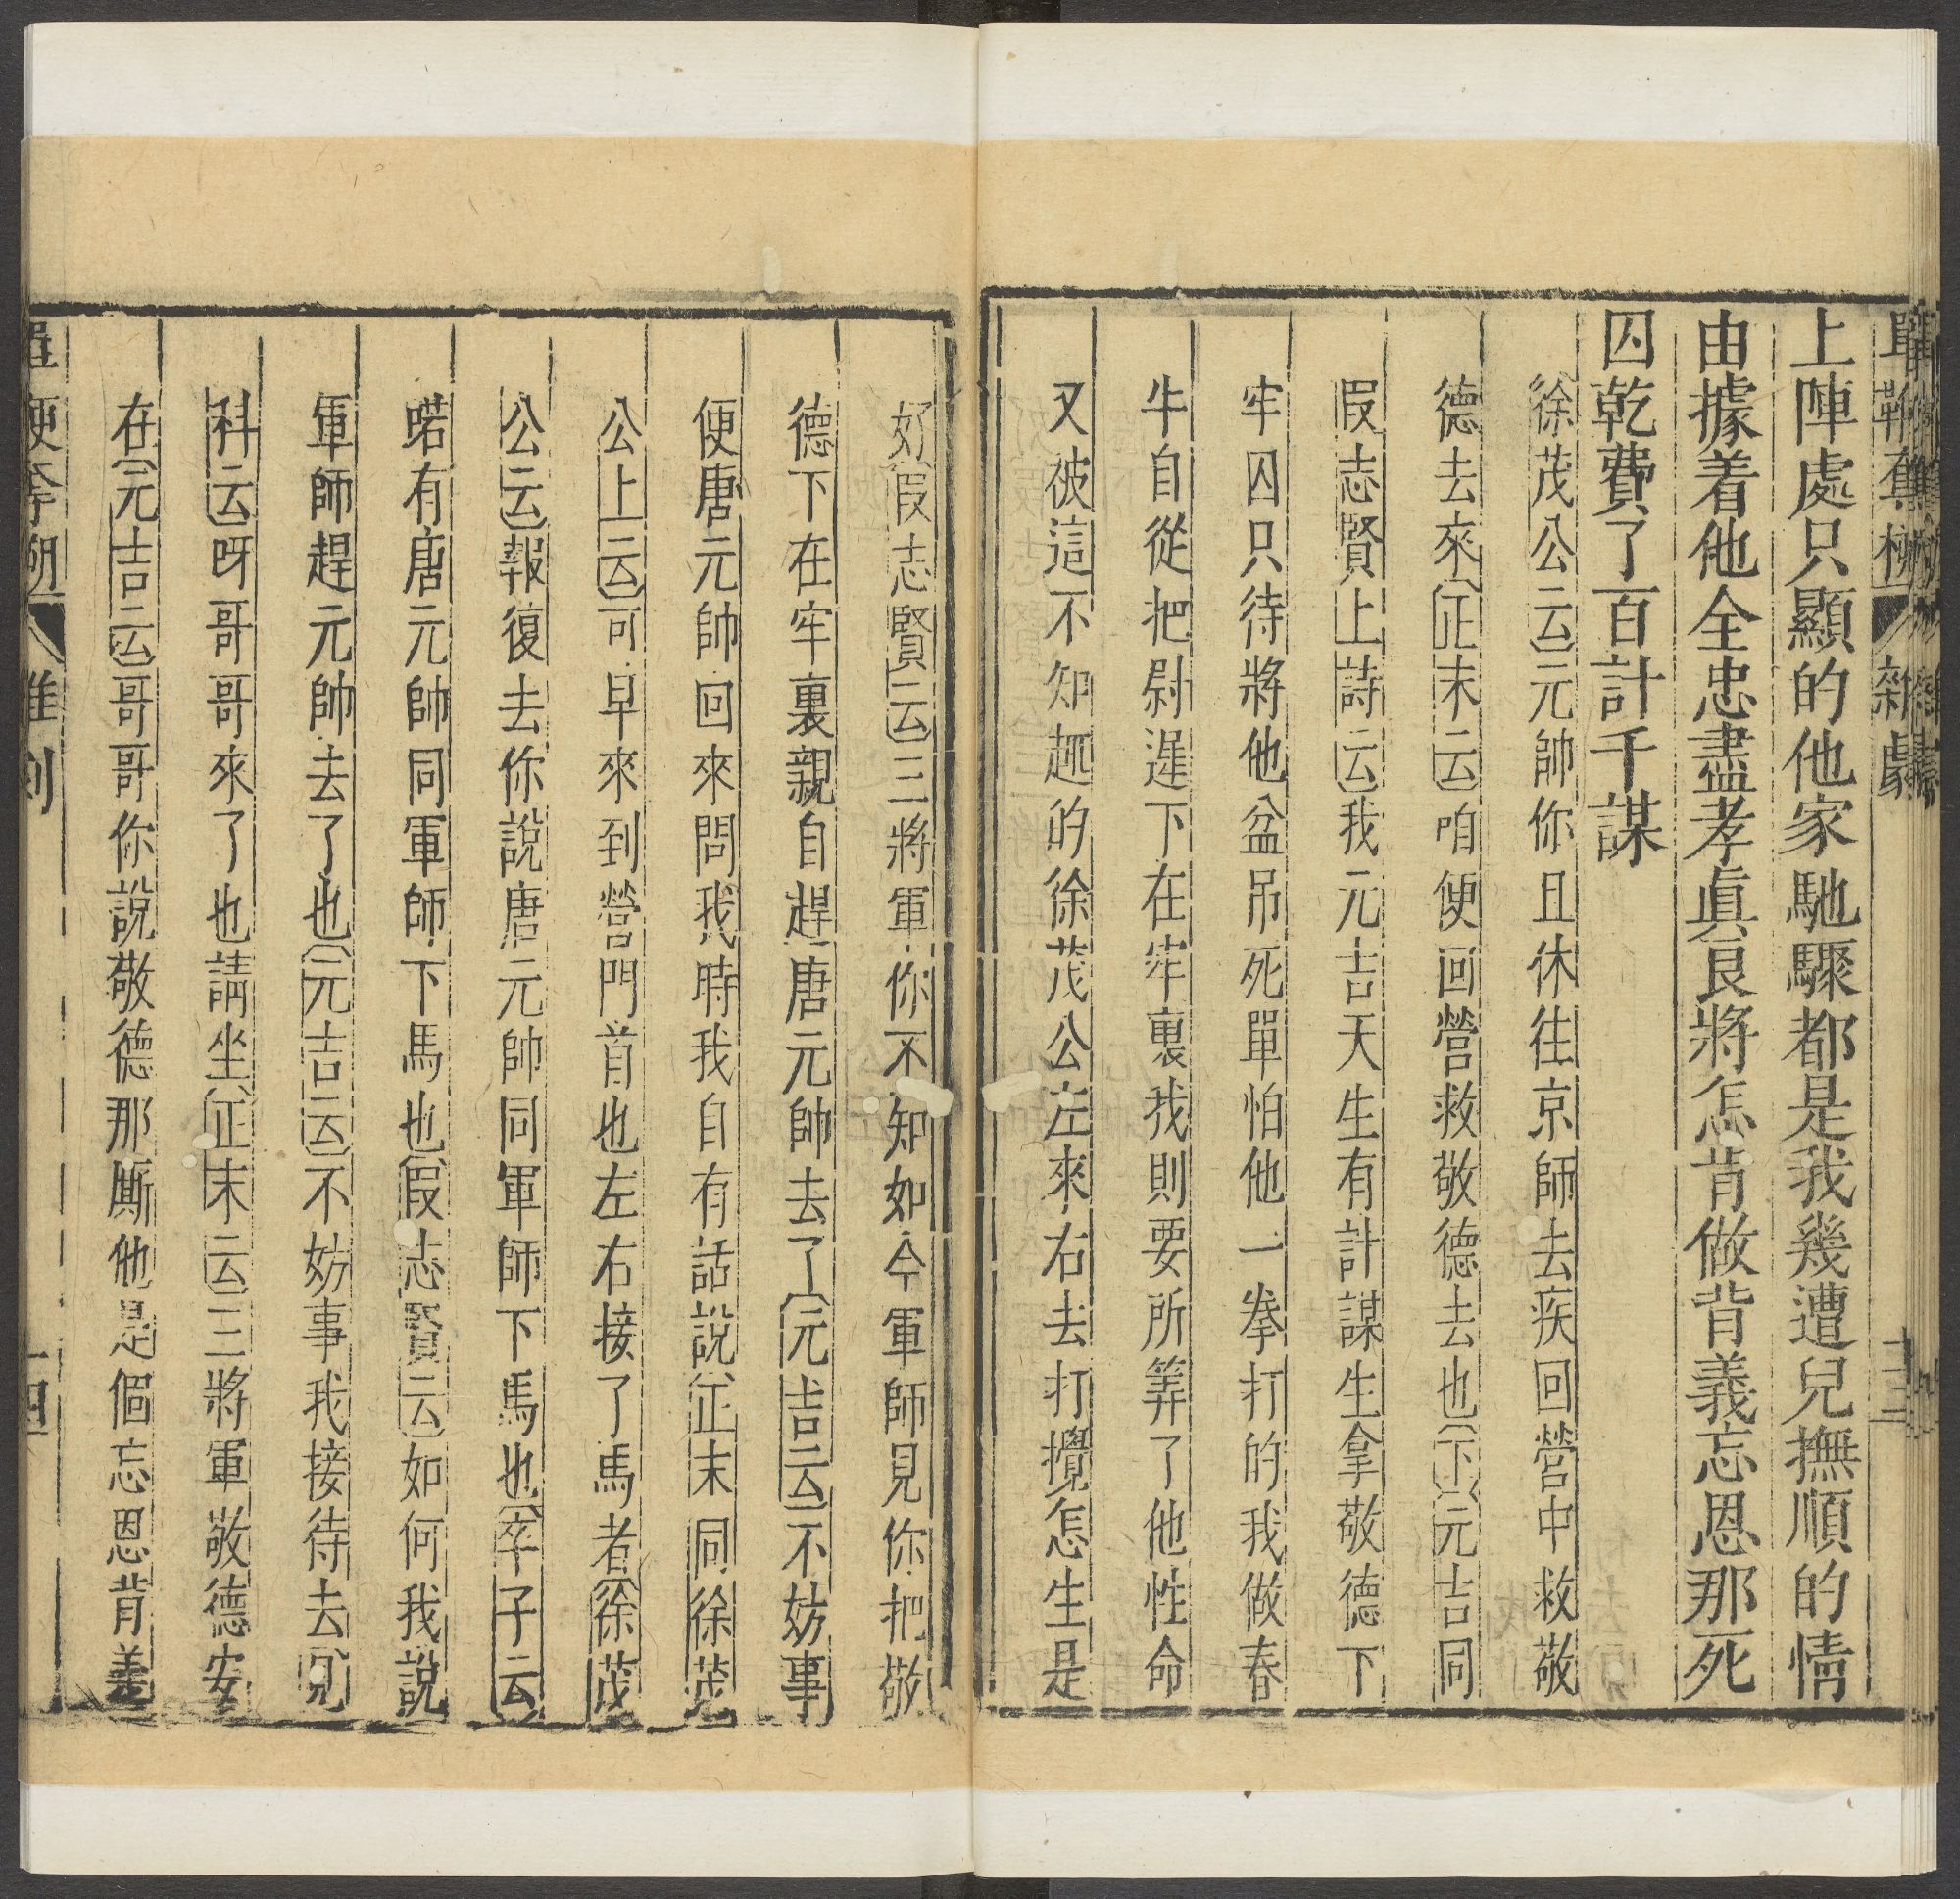 單鞭奪槊 雜劇 十三
上陣處只顯的他家馳驟都是我幾遭兒撫順的情
由據着他全忠盡孝眞良將怎肯做背義忘恩那死
囚乾費了百計千謀
徐茂公云元帥你且休往京師去疾回營中救敬
德去來正末云咱便回營救敬德去也下元吉同
叚志賢上詩云我元吉天生有計謀生拿敬德下
牢囚只待將他盆吊死單怕他一拳打的我做春
牛自從把尉遲下在牢裏我則要所筭了他性命
又被這不知趣的徐茂公左來右去打攪怎生是
好叚志賢云三將軍你不知如今軍師見你把敬
德下在牢裏親自趕唐元帥去了元吉云不妨事
便唐元帥回來問我時我自有話說正末同徐茂
公上云可早來到營門首也左右接了馬者徐茂
公云報復去你說唐元帥同軍師下馬也卒子云
喏有唐元帥同軍師下馬也叚志賢云如何我說
軍師趕元帥去了也元吉云不妨事我接待去見
科云呀哥哥來了也請坐正末云三將軍敬德安
在元吉云哥哥你說敬德那厮他是個忘恩背義
單鞭奪槊 雜劇 十四